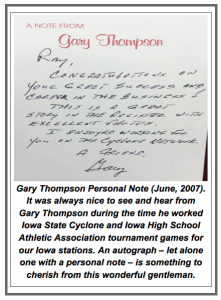 A NOTE FROM
Gary Thompson
Ray,
CONGRATULATIONS ON
YOUR GREAT SUCCESS AND
CAREER IN THE BUSINESS!
THIS IS A GREAT
STORY IN THE REGISTER WITH
EXCELLENT PHOTOS.
I ENJOYED WORKING FOR
YOU ON THE CYCLONE NETWORK.
A FRIEND,
Gary
Gary Thompson Personal Note (June, 2007).
It was always nice to see and hear from
Gary Thompson during the time he worked
Iowa State Cyclone and Iowa High School
Athletic Association tournament games for
our Iowa stations. An autograph – let alone
one with a personal note – is something to
cherish from this wonderful gentleman.